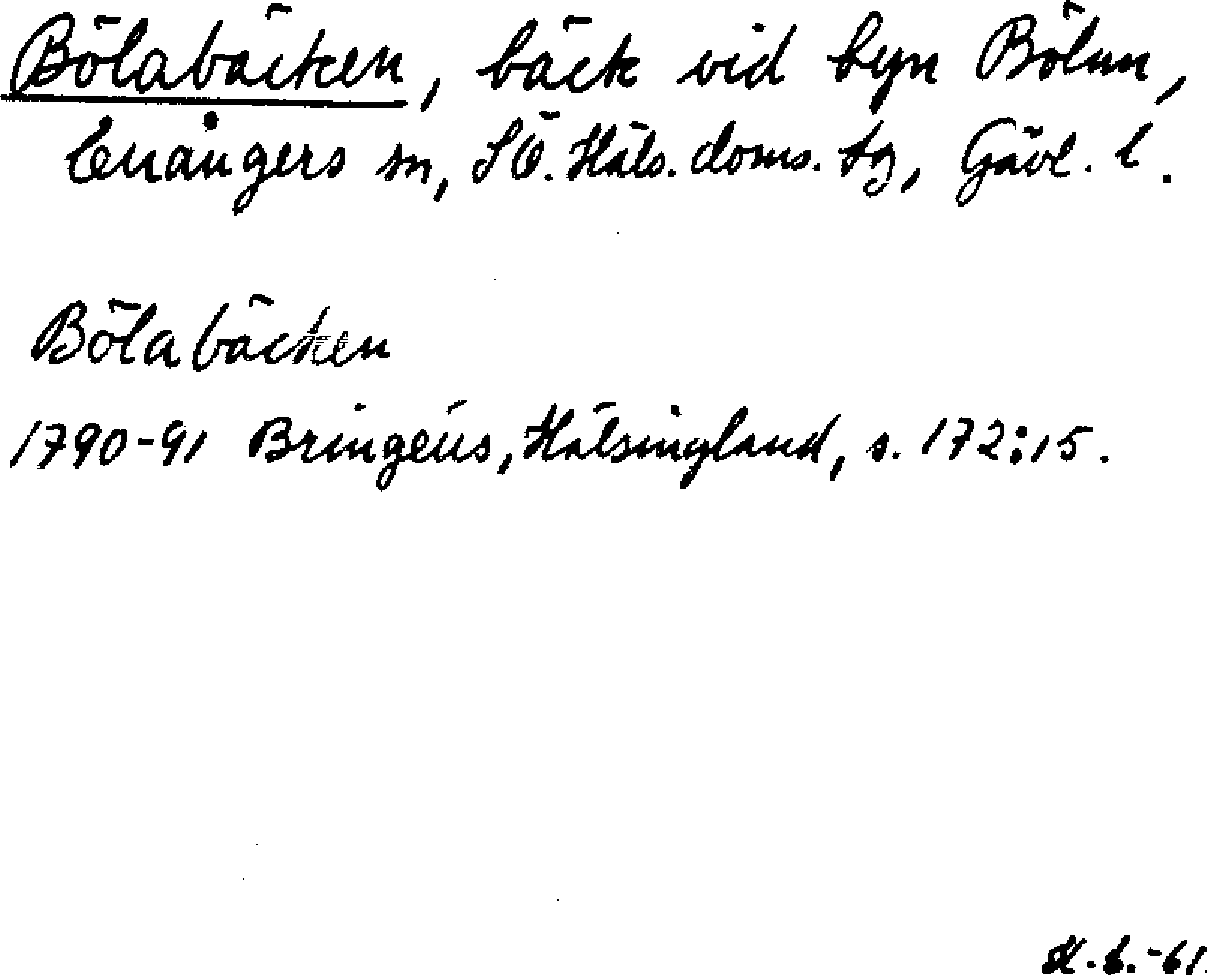 Bölabäcken, bäck vid byn Bölan,
Enångers sn, SÖ. Häls. doms. tg, Gävl. l.
Bölabäcken
1790-91 Bringéus, Hälsingland, s. 172:15.
-61.